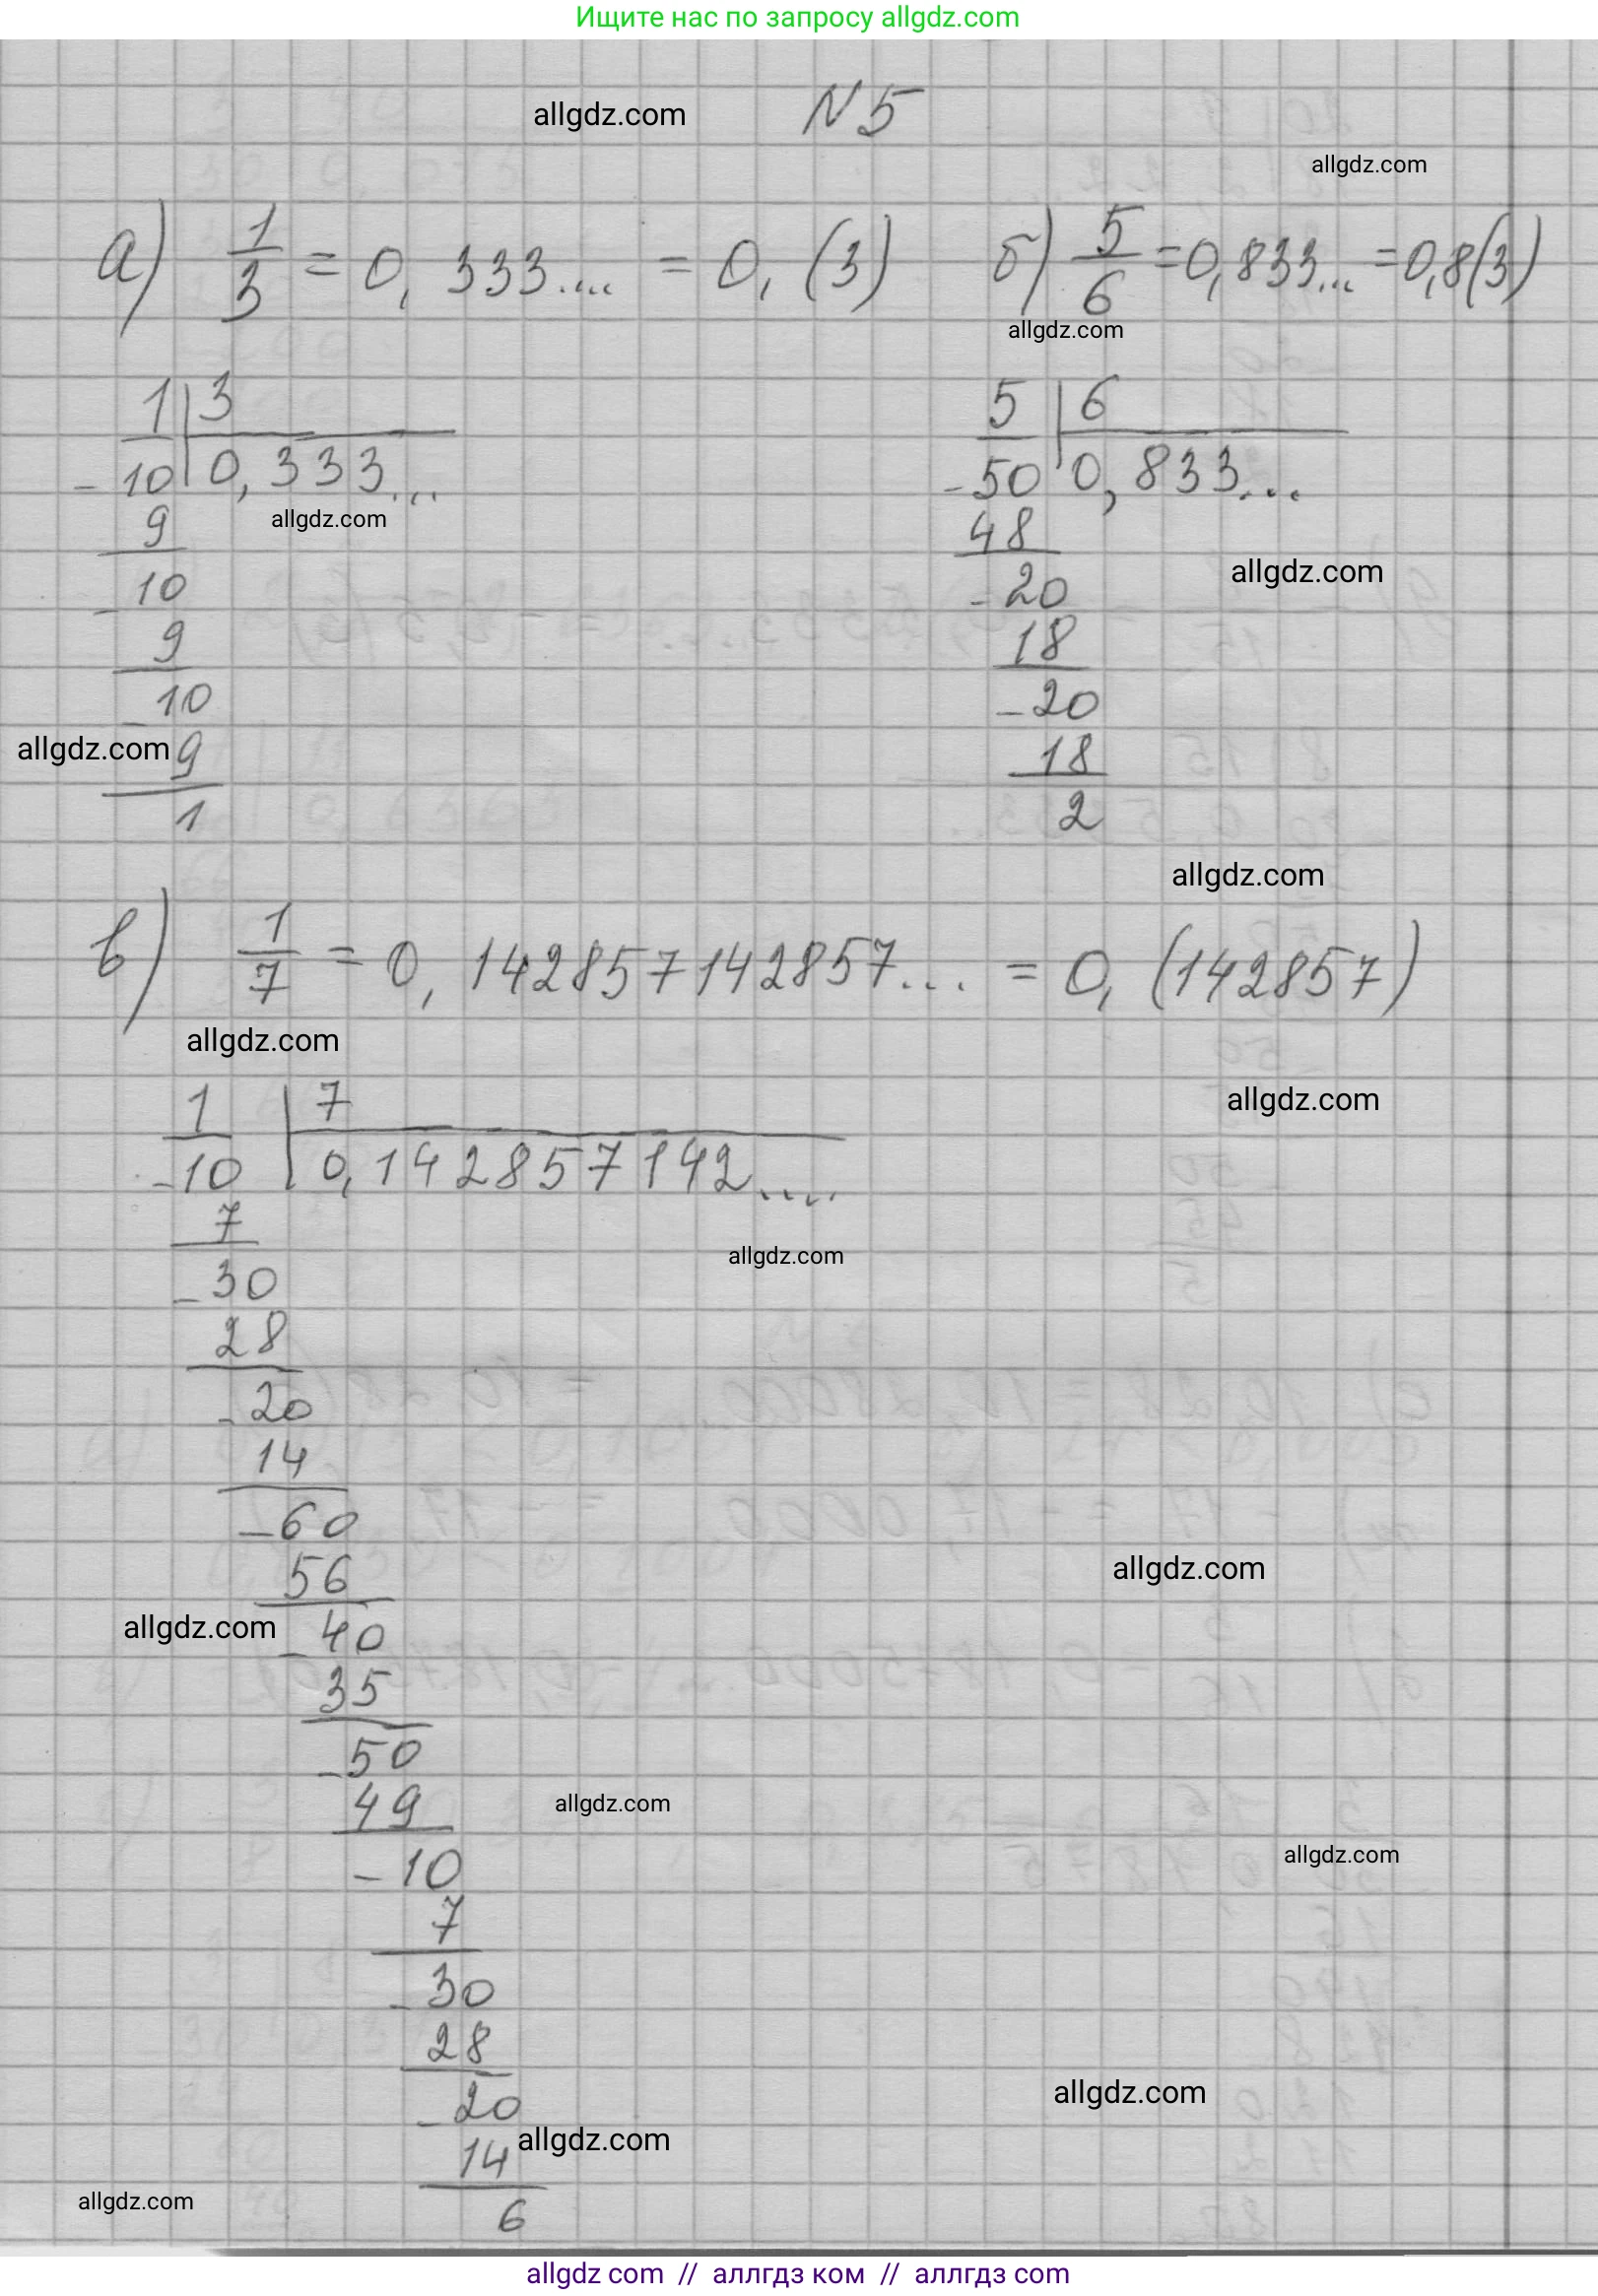 Ищите нас по запросу allgdz.com
allgdz.com
N 5
allgdz.com
а) 1/3 = 0, 333.... = 0, (3)
б) 5/6 = 0,833... = 0,8(3)
allgdz.com
1 | 3
- 10 | 0, 333...
allgdz.com
9
- 10
9
- 10
allgdz.com
9
1
5 | 6
- 50 | 0, 833...
48
allgdz.com
- 20
18
- 20
18
2
allgdz.com
в) 1/7 = 0, 142857142857... = 0, (142857)
allgdz.com
allgdz.com
1 | 7
- 10 | 0,142857142....
7
allgdz.com
- 30
28
- 20
14
- 60
allgdz.com
56
allgdz.com
- 40
35
- 50
49
allgdz.com
allgdz.com
- 10
7
- 30
28
allgdz.com
- 20
allgdz.com
14
allgdz.com
6
allgdz com // аллгдз ком // аллгдз com